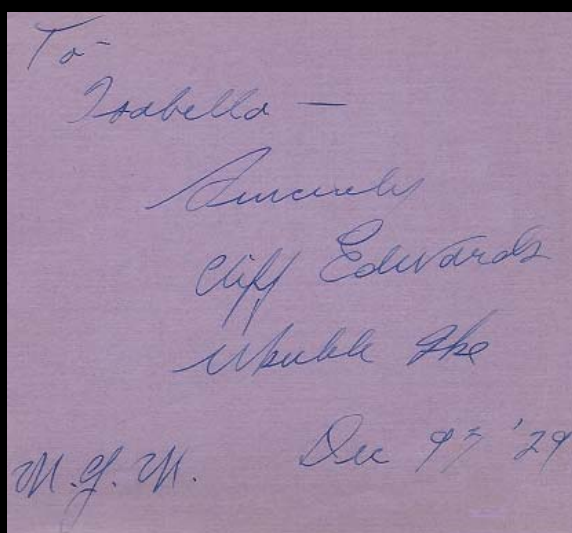 To -
Isabella —
Sincerely
Cliff Edwards
Ukulele Ike
M.G.M. Dec '29